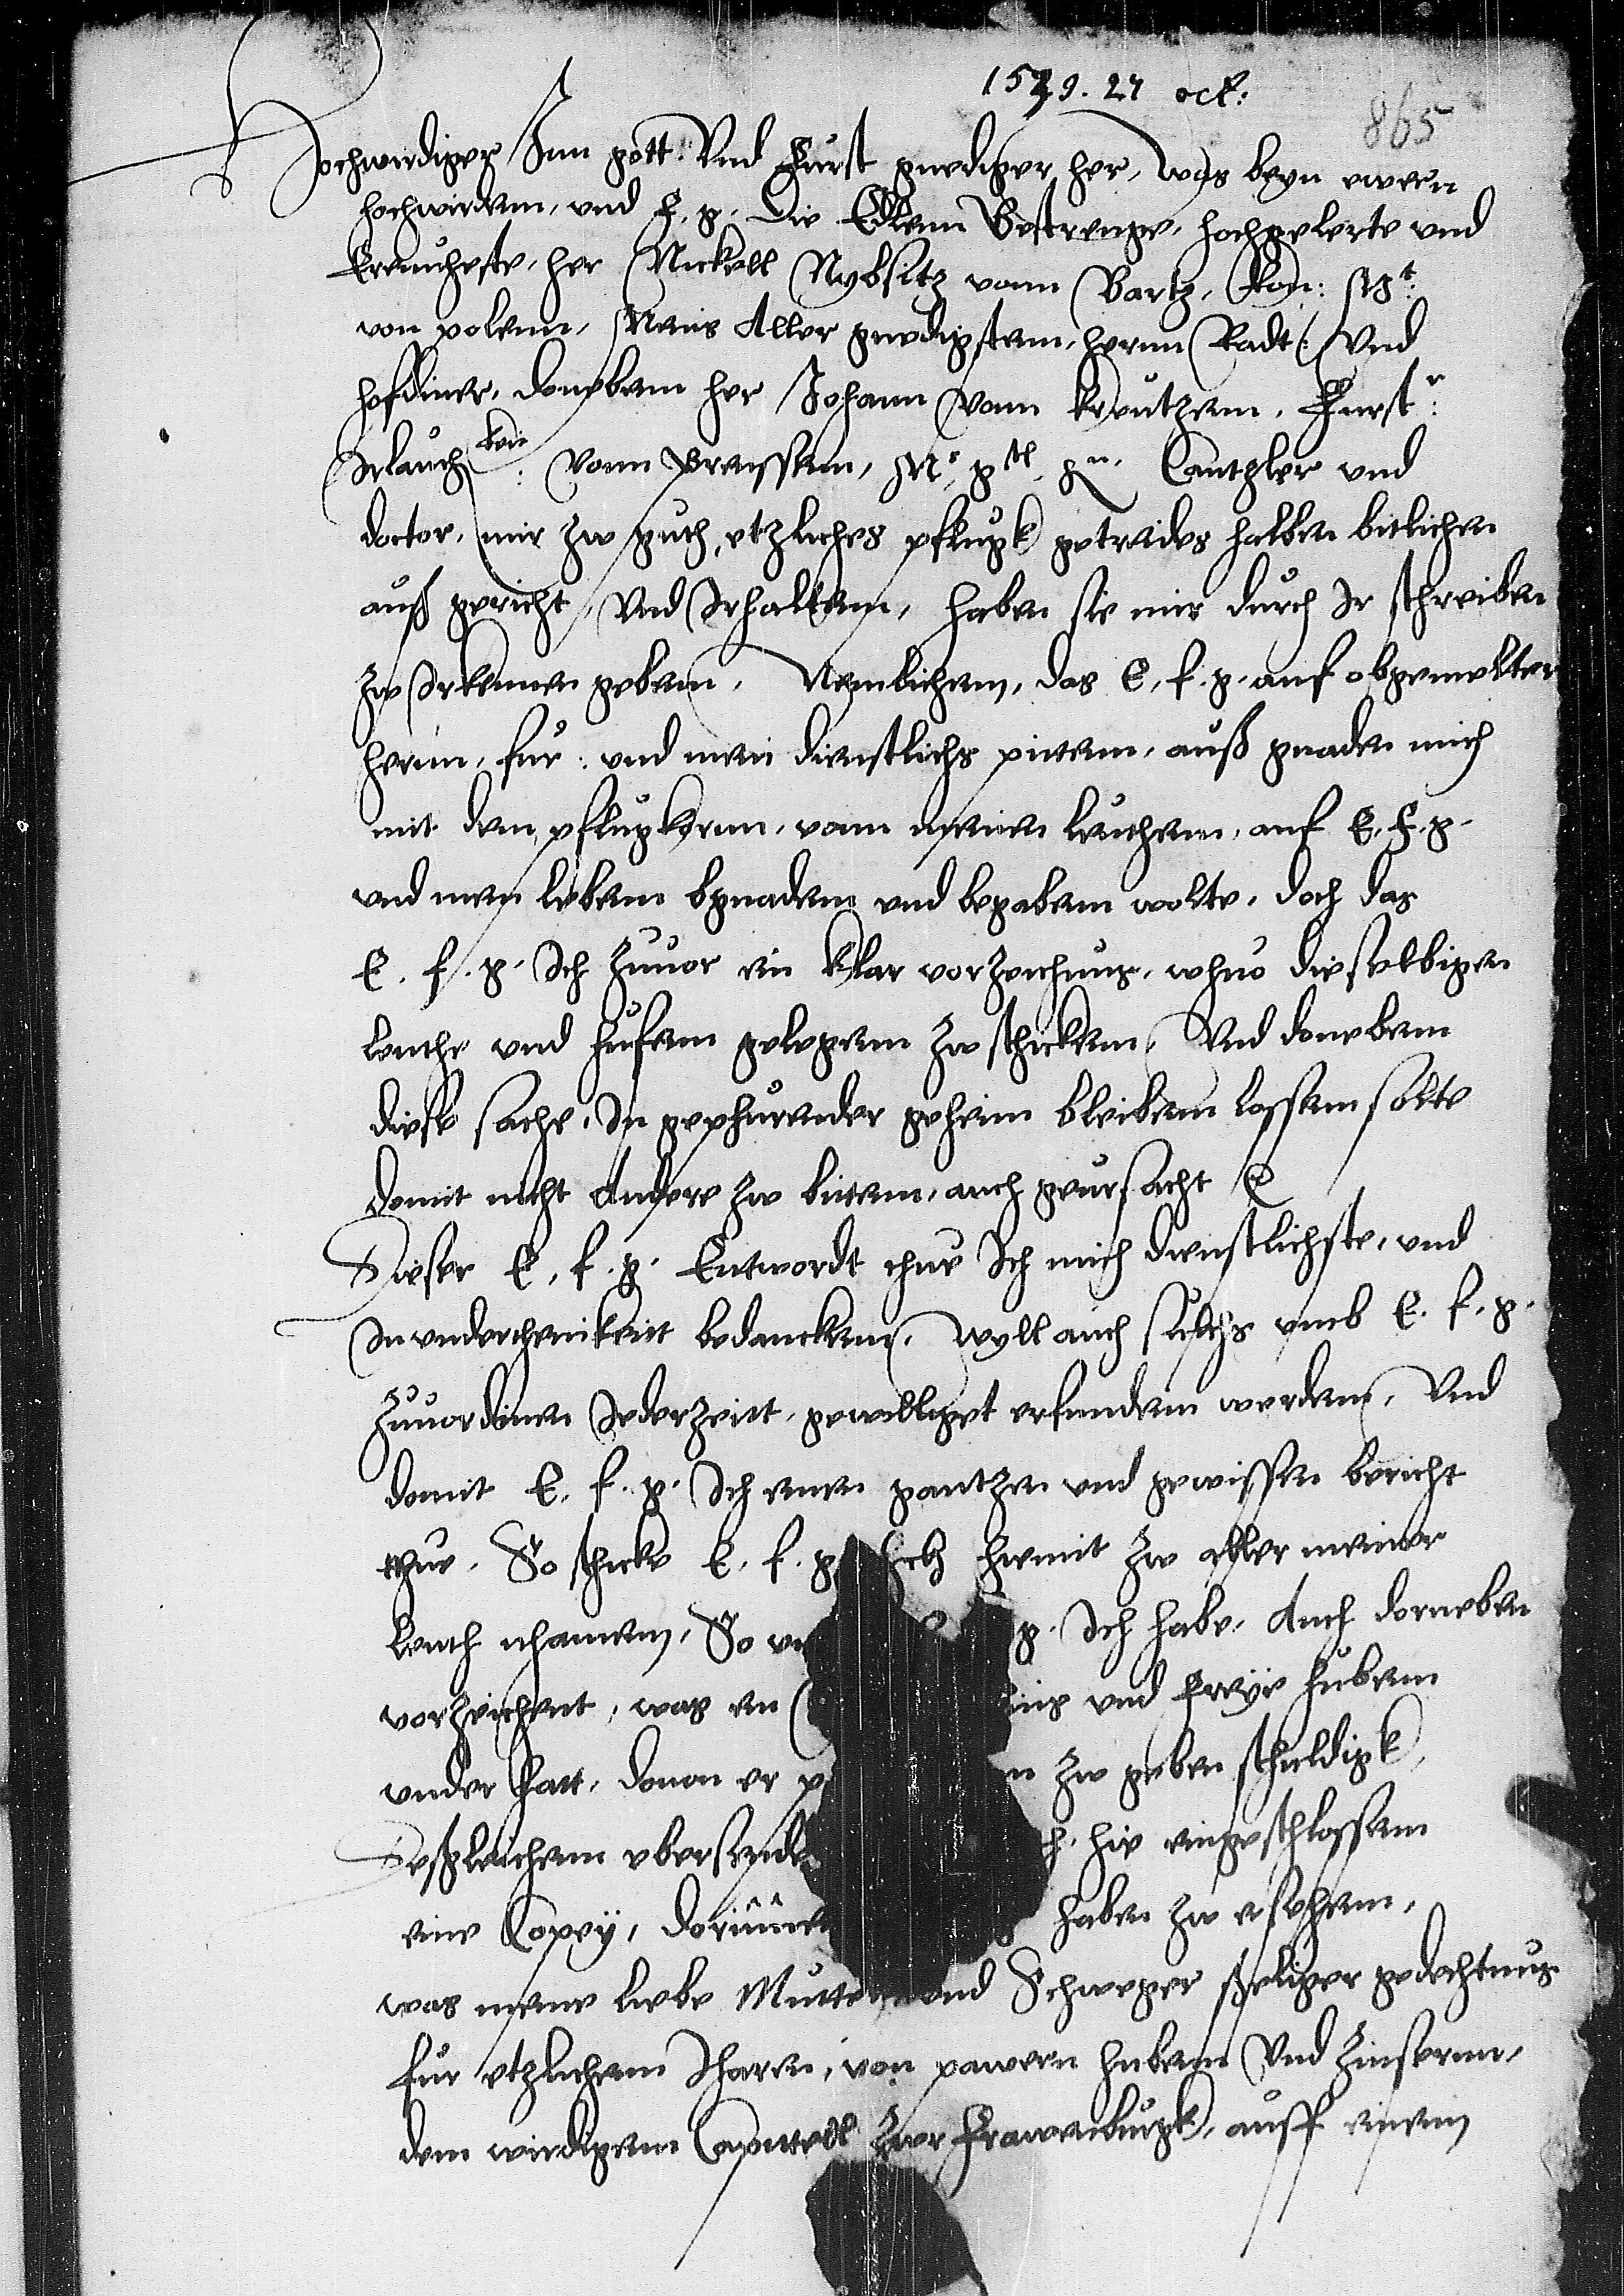 1539. 27 oct:
865
Hochwirdiger Inn gott Vnd Furst gnediger her, was beyn ewern
hochwirdenn, vnd F. g. Die Edlenn Gestrenge, hochgelerte vnd
Erenuheste, her Nickell Nybsitz vonn Bartz, Kon: Mt:
von polenn, Meins Aller gnedigstenn, hernn Radt: Vnd
hofdiner, donebenn her Johann vonn kreutzenn, Furstr:
Irlauchtenn: vonn Preussenn, Ms gstl gn Cantzler vnd
doctor, mir zw guth, etzliches pflugk getreides halben bitlichen
auß gericht, Vnd Irhaltenn, haben sie mir durch Ir schreiben
zw Irkennen gebenn, Nemlichenn, das E. f. g. auf obgemelter
hernn, fur: vnd mein dienstlichs pittenn, auß gnaden mich
mit dem pflugkornn, vonn meinen leuthenn, auf E. F. g.
vnd mein lebenn bgnadenn vnd begabenn wolte, doch das
E. f. g. Ich zuuor ein klar vorzeichnus, whuo dieselbigen
leuthe vnd hufenn gelegenn zw schickenn, Vnd donebenn
diese sache, In gephurender geheim bleibenn lassenn solte
domit nicht Andere zw bittenn, auch geursacht etc
Dieser E. f. g. Entwordt thue Ich mich dienstlichste, vnd
In vnderthenikeit bedanckenn, Wyll auch sulchs vmb E. f. g.
Zuuordinen Iederzeitt, gewilliget erfundenn werdenn, Vnd
domit E. f. g. Ich einen gantzen vnd gewissen bericht
thue, So schicke E. f. g. hiemit zw aller meiner
leuth nhamenn, So g. Ich habe, Auch dorneben
vorzeichent, was ein vnd freye hubenn
vnder hatt, douon er zw geben schuldigk,
Deßgleichenn vbersende hie eingeschlossenn
eine Copey, dorinnen haben zw ersehenn,
was meine liebe Mutter vnd Schweger seliger gedechtnus
fur etzlichenn Iharen, von pawern hubenn Vnd Zinsernn,
dem wirdigenn Capittell zwr Frawenburgk, auff einem